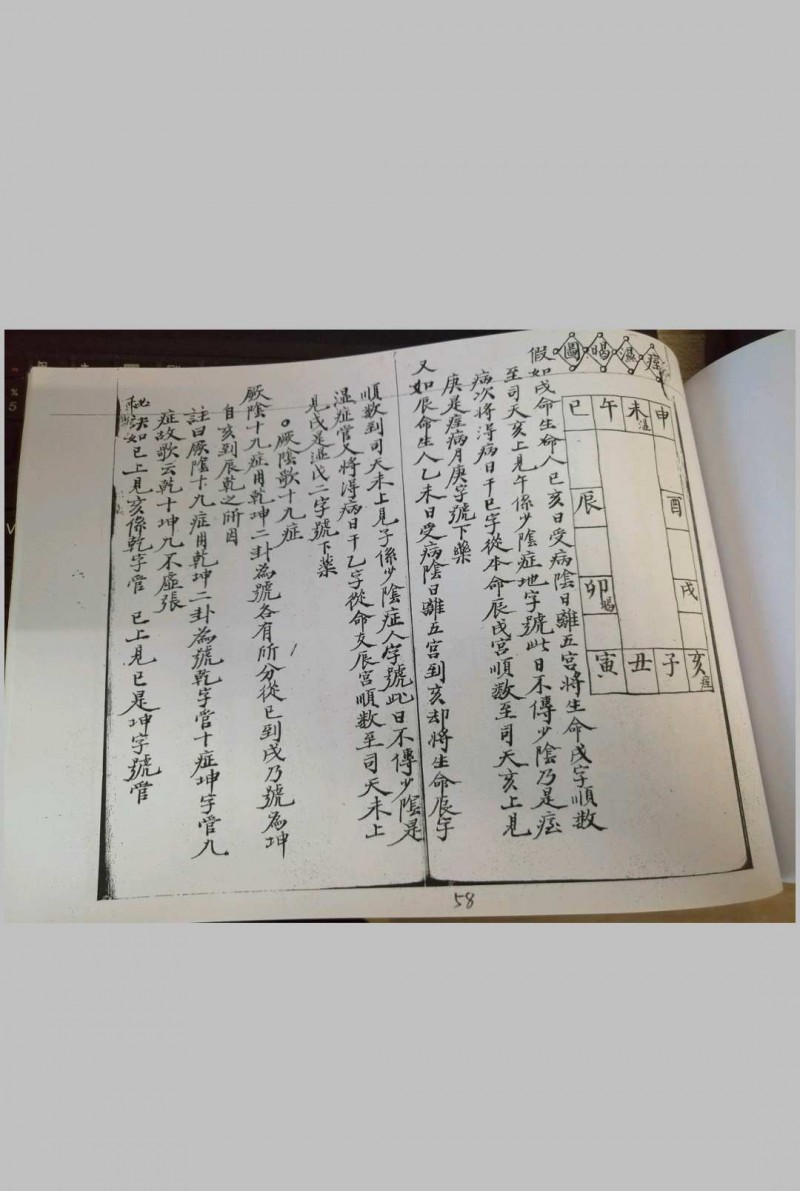 痓濕暍圖
巳 午 未濕 申
辰 酉
卯暍 戌
寅 丑 子 亥痓
假如戌命生命人巳亥日受病陰日離五宮將生命戌字順數
至司天亥上見午係少陰症地字號此日不傳少陰乃是痓
病次將得病日干巳字從本命辰戌宮順数至司天亥上見
庚是痓病月庚字號下藥
又如辰命生人乙未日受病陰日離五宮到亥却將生命辰字
順数到司天未上見子係少陰症人字號此日不傳少陰是
濕症管又將得病日干乙字從命支辰宮順数至司天未上
見戊是濕戊二字號下藥
。厥陰歌十九症
厥陰十九症用乾坤二卦為號各有所分從巳到戌乃號為坤
自亥到辰乾之所因
註曰厥陰十九症用乾坤二卦為號乾字管十症坤字管九
症故歌云乾十坤九不虛張
秘訣如巳上見亥係乾字管 巳上見巳是坤字號管
58